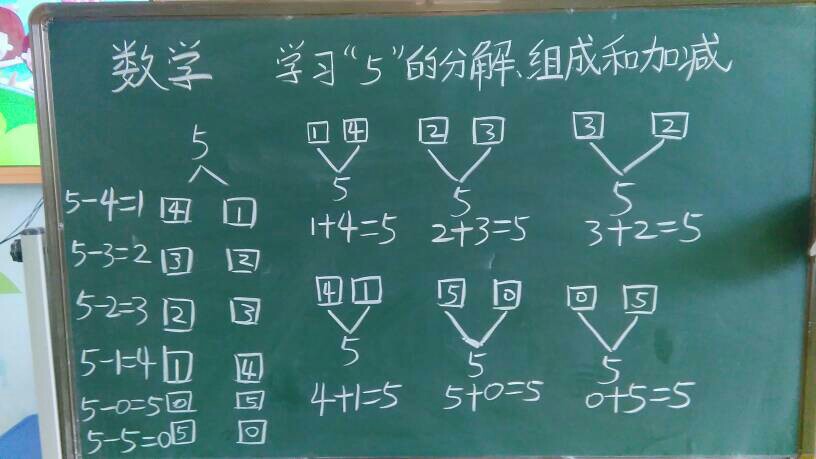 数学 学习“5”的分解、组成和加减
5
5-4=1 4 1
5-3=2 3 2
5-2=3 2 3
5-1=4 1 4
5-0=5 0 5
5-5=0 5 0
1 4
5
1+4=5
2 3
5
2+3=5
3 2
5
3+2=5
4 1
5
4+1=5
5 0
5
5+0=5
0 5
5
0+5=5